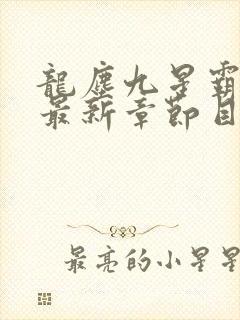 龍塵九星霸
最新章節目
最亮的小星星